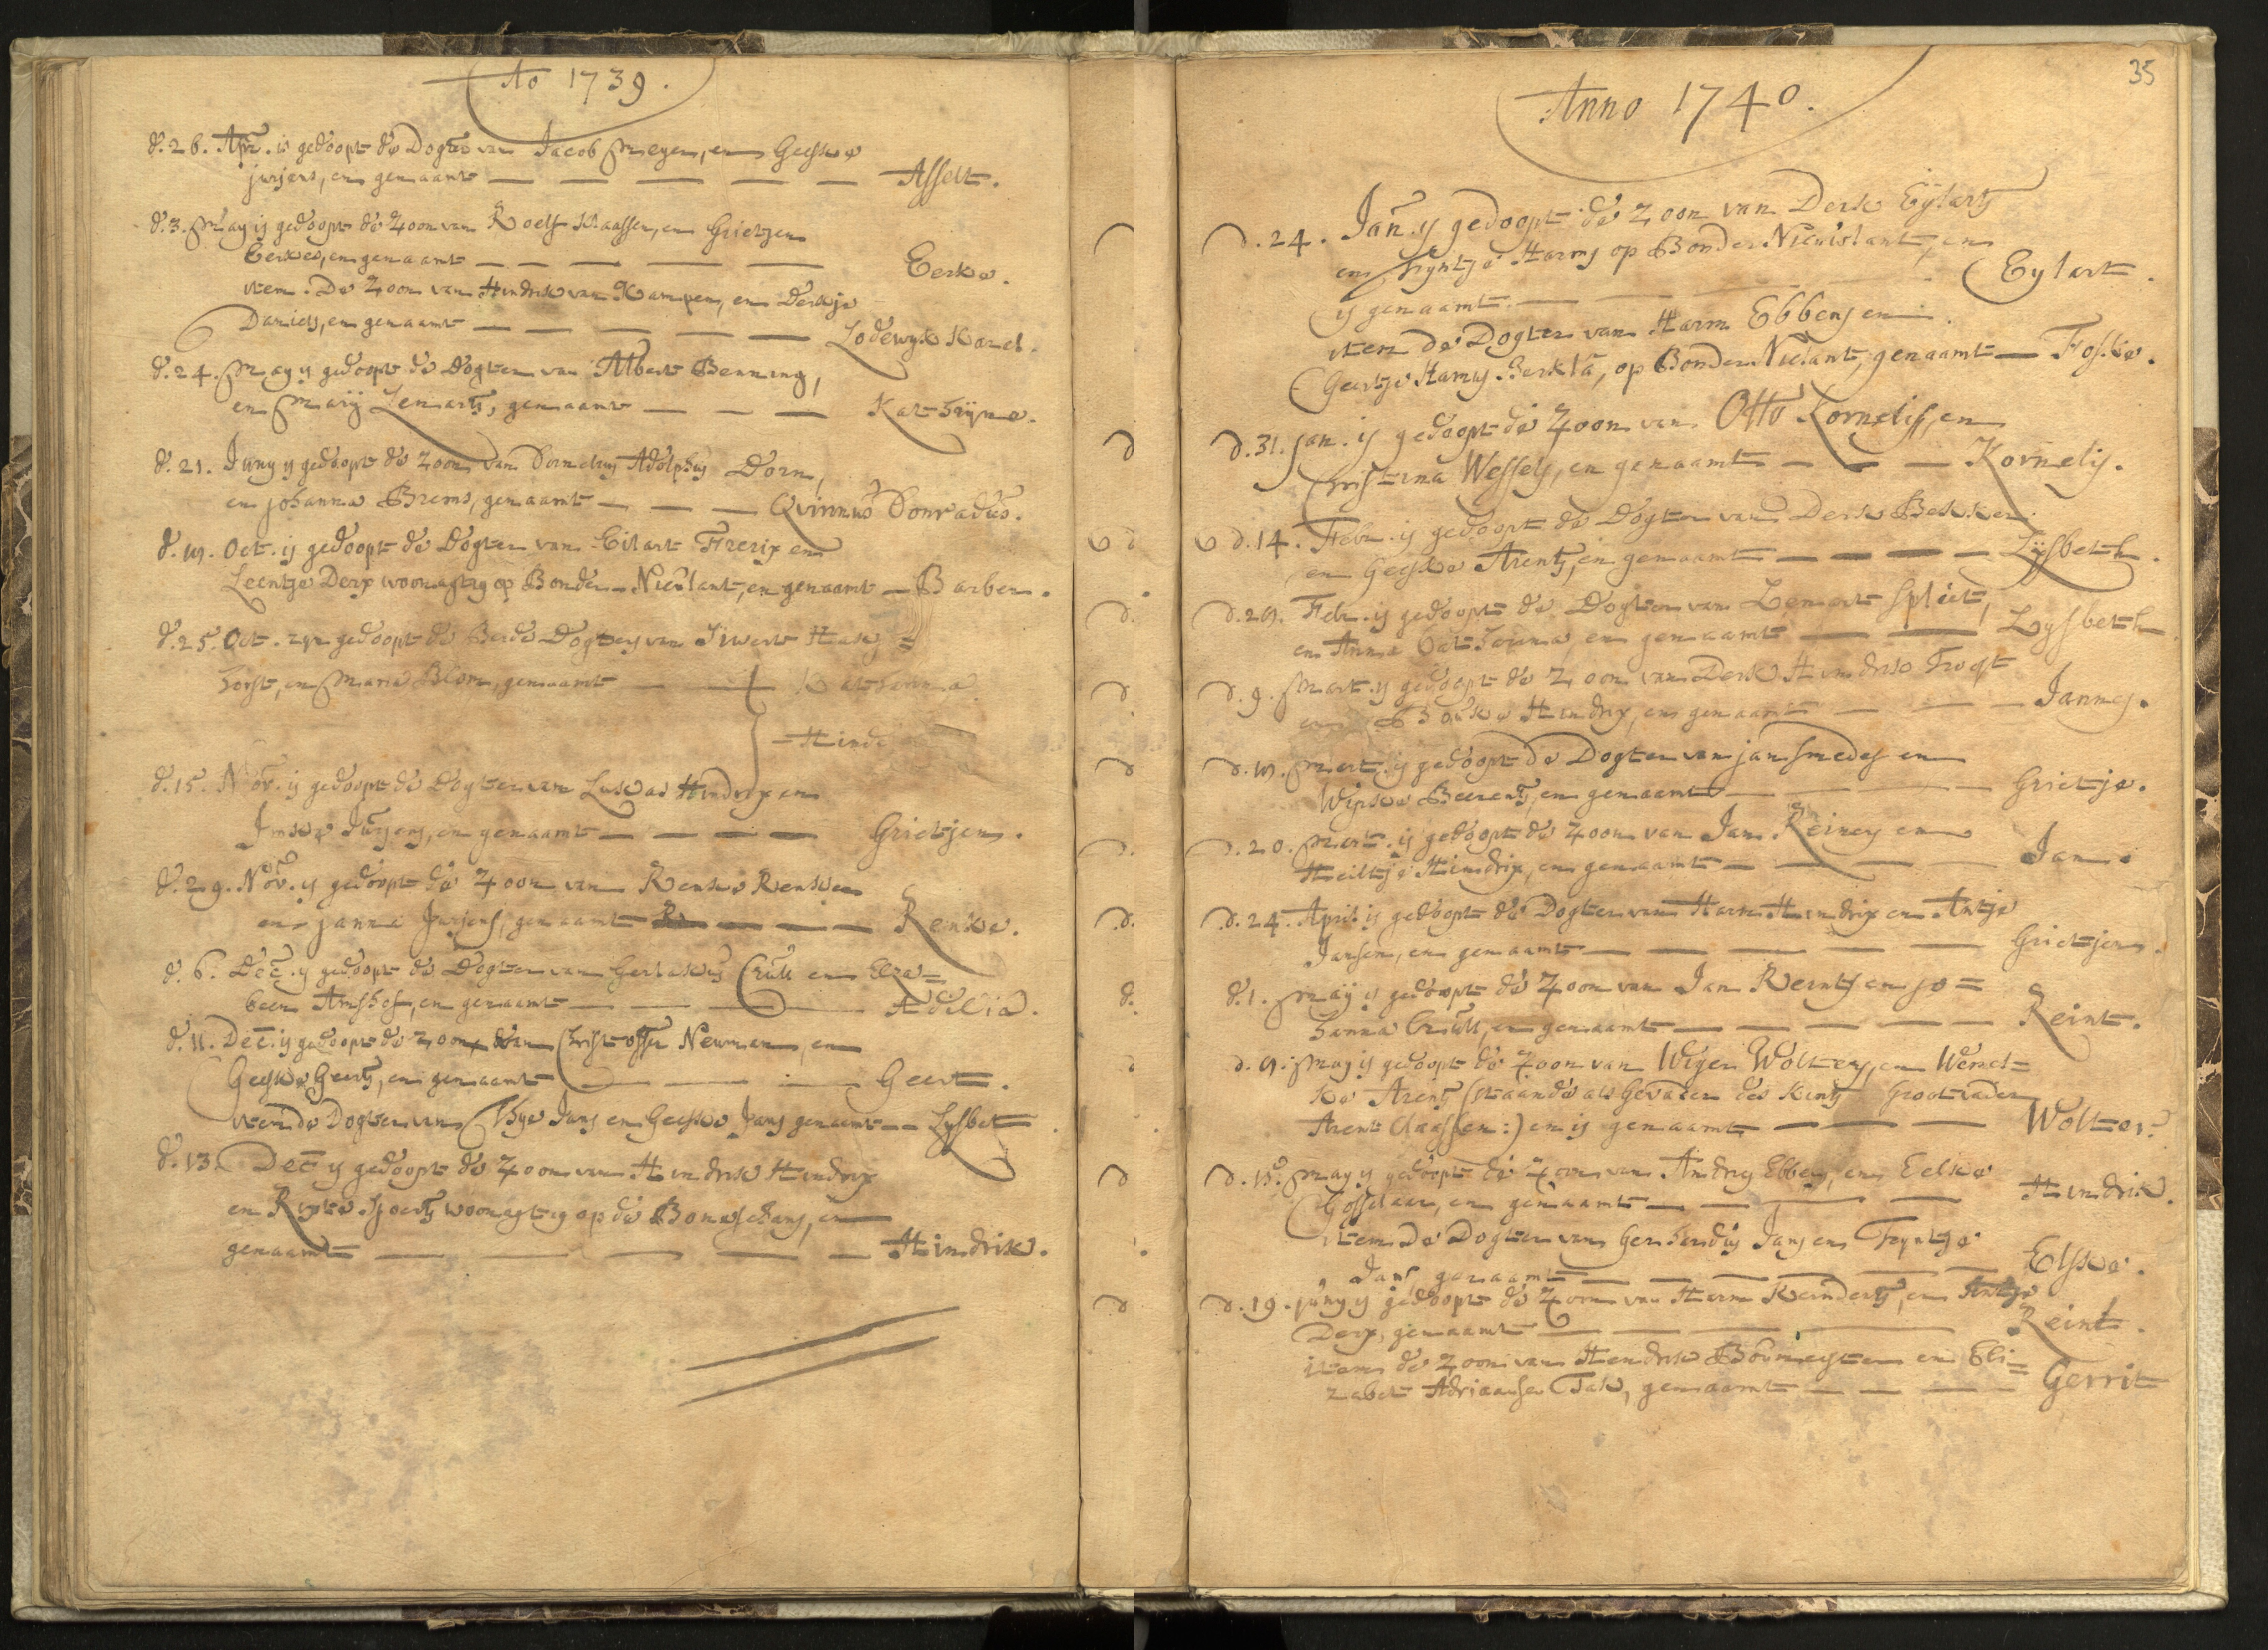 Ao 1739.
d. 26. Apr. is gedoopt de Dogter van Jacob Meyer, en Geeske
jurjens, en genaamt — — — — — Asselt.
d. 3. May is gedoopt de Zoon van Roelf Klaassen, en Grietjen
Eerkes, en genaamt — — — — — Eerke.
item. De Zoon van Hindrik van Kampen, en Derkje
Daniels, en genaamt — — — — — Lodewyk Karel.
d. 24. May is gedoopt de Dogter van Albert Benning,
en Marij Lenarts, genaamt — — — Kathrijne.
d. 21. Juny is gedoopt de Zoon van Cornelius Adolphus Dorn,
en johanna Brems, genaamt — — — Qvirinus Conradus.
Oct. is gedoopt de Dogter van Eilart Frerix en
Leentje Derx woonagtig op Bonder-Nieulant, en genaamt — Barber.
d. 25. Oct. zyn gedoopt de Beide Dogters van Siwert Hase=
horst, en Maria Blom, genaamt — — Katharina
— Hind
d. 15. Nov. is gedoopt de Dogter van Lukas Hindrix en
Imke Jurjens, en genaamt — — — — Grietjen.
d. 29. Nov. is gedoopt de Zoon van Renke Renken
en janna Jurjens, genaamt — — — — Renke.
d. 6. Dec. is gedoopt de Dogter van Gerlakus Crull en Eliza=
been Amshof, en genaamt — — — — Adelia.
d. 11. Dec. is gedoopt de Zoon van Christoffer Newman, en
Geeske Geerts, en genaamt — — — — Geert.
item de Dogter van Thye Jans en Geeske Jans genaamt — — Lysbet
d. 13. Dec is gedoopt de Zoon van Hindrik Hindrix
en Rixte Sjoerts woonagtig op de Boneschans, en
genaamt — — — — — Hindrik.
35
Anno 1740.
d. 24. Jan. is gedoopt de Zoon van Derk Eylarts
en Fryntje Harms op Bonder Nieulant, en
is genaamt — — — Eylart.
item de Dogter van Harm Ebbens en
Geertje Harms Berkla, op Bonder Nieulant, genaamt — Foske.
d. 31. Jan. is gedoopt de Zoon van Otto Kornelissen
Christina Wessels, en genaamt — — — Kornelis.
d. 14. Febr. is gedoopt de Dogter van Derk Bekker
en Geeske Arents, en genaamt — — — — Lysbeth.
Febr. is gedoopt de Dogter van Lenart Spliet,
en Anna Catharina, en genaamt — — Lysbeth
d. 9. Mart. is gedoopt de Zoon van Derk Hindrik Trogt
en Bouke Hindrix, en genaamt — — — Jannes.
Mert. is gedoopt de Dogter van jan smedes en
Wipke Beerents, en genaamt — — — Grietje.
d. 20. Mert. is gedoopt de Zoon van Jan Reiners en
Heiltje Hindrix, en genaamt — — — — Jan.
d. 24. April is gedoopt de Dogter van Harm Hindrix en Antje
Jansen, en genaamt — — — — — Grietjen.
d. 1. May is gedoopt de Zoon van Jan Reints en jo=
hanna Crull, en genaamt — — — — — Reint.
May is gedoopt de Zoon van Wigen Wolters, en Wend=
ke Arents (staande als Gevader des Kints Grootvader
Arent Claassen:) en is genaamt — — — Wolter.
d. 15. May is gedoopt de Zoon van Andries Ebbes, en Eelke
Gosselaar, en genaamt — — — — Hindrik.
item De Dogter van Gerhardus Jans en Tryntje
Jans, genaamt — — — — — — Elske.
d. 19. juny is gedoopt de Zoon van Harm Reinderts, en Antje
Derx, genaamt — — — — — Reint.
item de Zoon van Hendrik Boumeyster en Eli=
zabet Adriaanse Tak, genaamt — — — — Gerrit